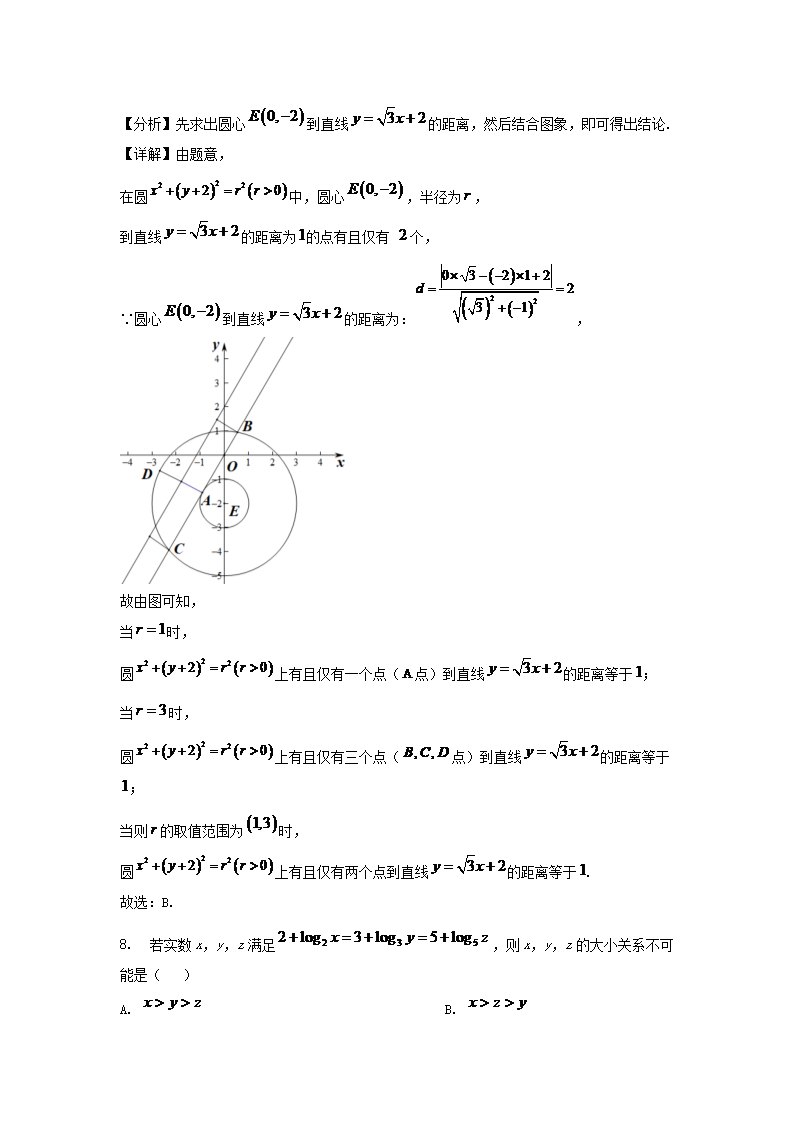 【分析】先求出圆心E(0,−2)到直线y=√3x+2的距离，然后结合图象，即可得出结论.
【详解】由题意，
在圆x²+(y+2)²=r²(r>0)中，圆心E(0,−2)，半径为r，
到直线y=√3x+2的距离为1的点有且仅有 2个，
∵圆心E(0,−2)到直线y=√3x+2的距离为：d=|0×√3−(−2)×1+2|/√((√3)²+(−1)²)=2，
y
4
3
2
1 B
−4 −3 −2 −1 O 1 2 3 4 x
D
−1
A −2 E
−3
C −4
−5
故由图可知，
当r=1时，
圆x²+(y+2)²=r²(r>0)上有且仅有一个点（A点）到直线y=√3x+2的距离等于1；
当r=3时，
圆x²+(y+2)²=r²(r>0)上有且仅有三个点（B,C,D点）到直线y=√3x+2的距离等于
1；
当则r的取值范围为(1,3)时，
圆x²+(y+2)²=r²(r>0)上有且仅有两个点到直线y=√3x+2的距离等于1.
故选：B.
8. 若实数x，y，z满足2+log₂x=3+log₃y=5+log₅z，则x，y，z的大小关系不可
能是（ ）
A. x>y>z B. x>z>y